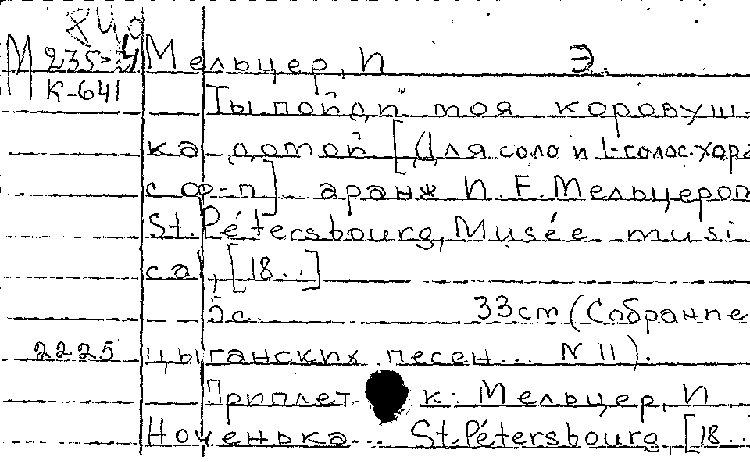 М 235-4 Мельцер, И Э.
К-641 Ты пойди моя коровуш
ка домой [Для соло и 4-голос. хора
с ф-п] аранж И. Е. Мельцером
St. Pétersbourg, Musée musi
cal, [18..]
5с. 33cm (Собрание
2225 цыганских песен... N 11).
Приплет к: Мельцер, И
Ноченька... St. Pétersbourg, [18..